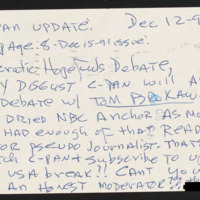 PAN UPDATE. Dec 12-9
Page. 8-Dec 15-91 issue.
cratic Hopefuls Debate,
Y DISGUST C-PAN will A
DEBATE W/ TOM BROKAW.
DRIED NBC ANCHOR AS MO
HAD ENOUGH of that READ
OR PSEUDO JOURNALIST. THAT'S
CH C-PAN & SUBSCRIBE TO U
US A BREAK!! CAN'T YOU
AN HONEST MODERATOR??